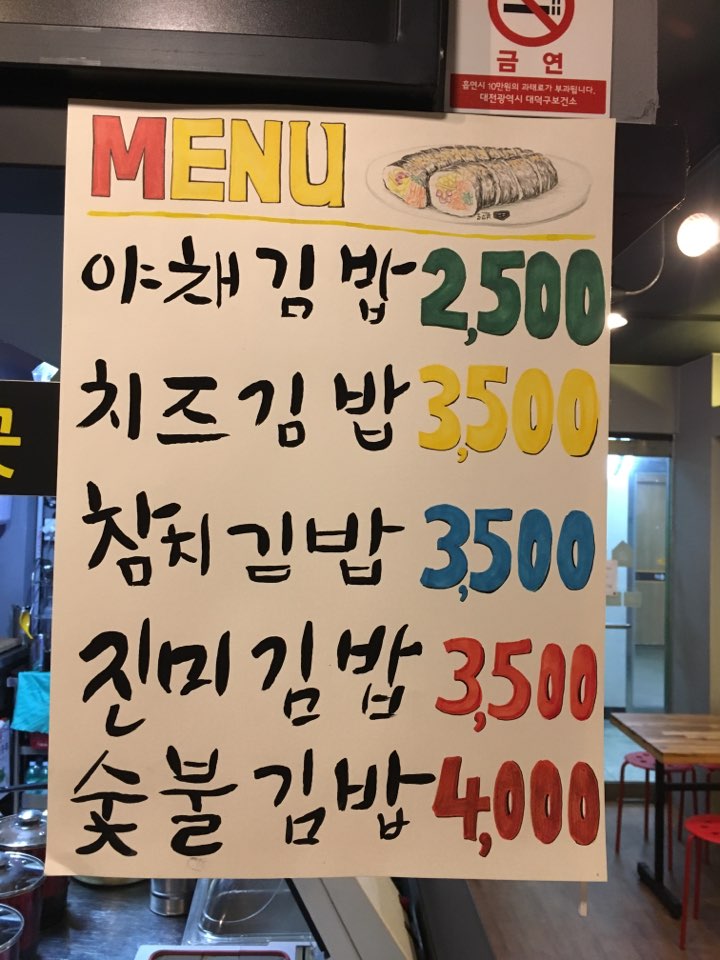 금연
흡연시 10만원의 과태료가 부과됩니다.
대전광역시 대덕구보건소
MENU
야채김밥 2,500
치즈김밥 3,500
참치김밥 3,500
진미김밥 3,500
숯불김밥 4,000